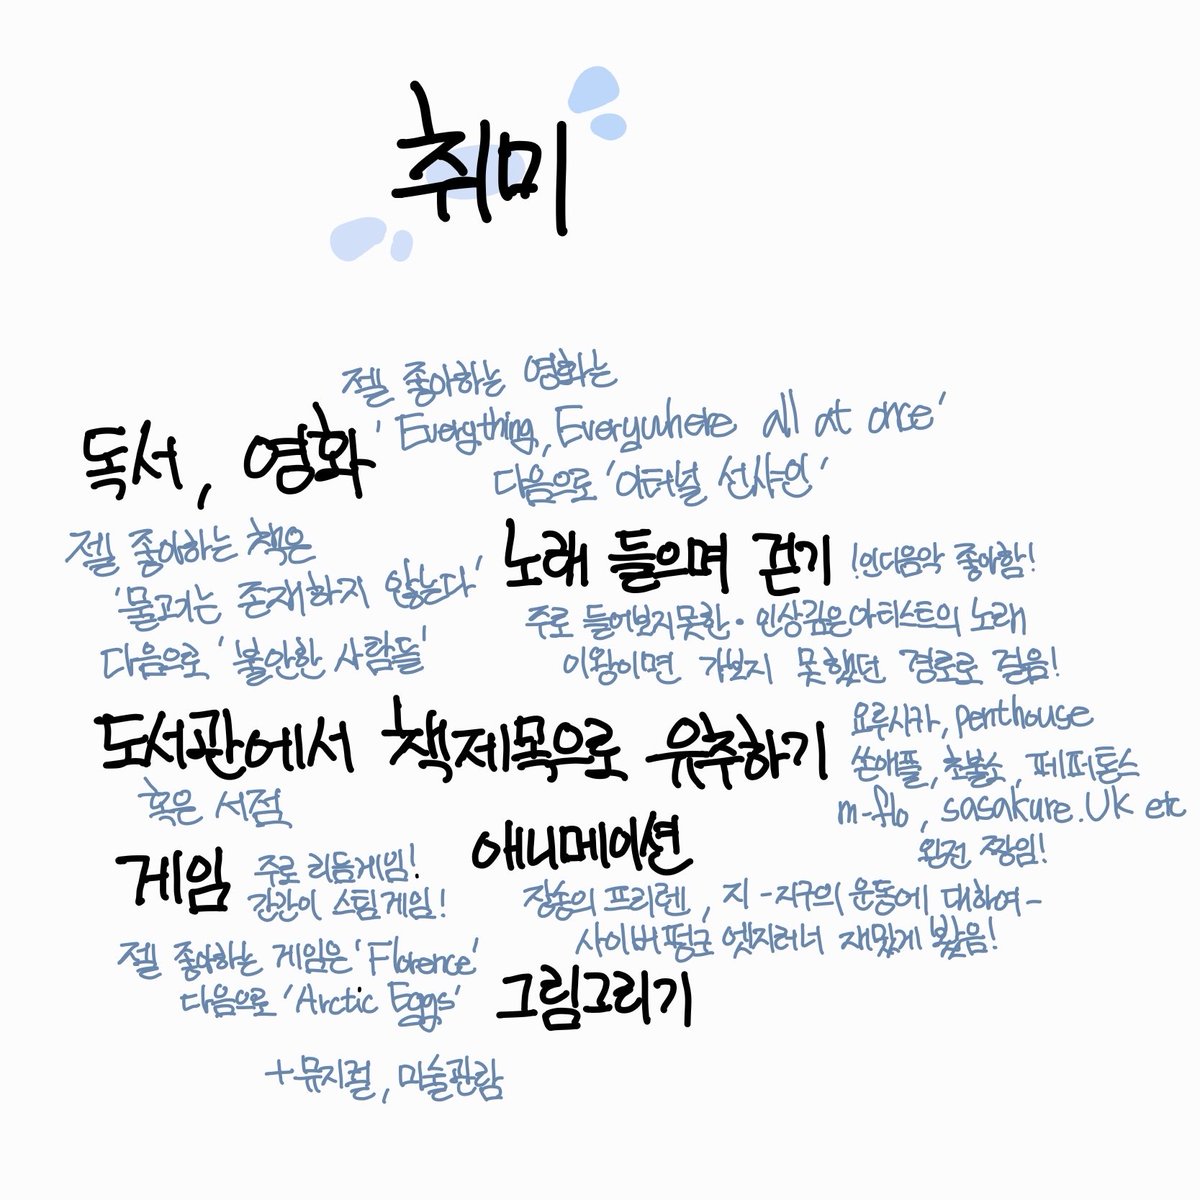 취미
젤 좋아하는 영화는
독서, 영화
'Everything, Everywhere all at once'
다음으로 '이터널 선샤인'
젤 좋아하는 책은
'물고기는 존재하지 않는다'
다음으로 '불안한 사람들'
노래 들으며 걷기
!인디음악 좋아함!
주로 들어보지못한·인상깊은아티스트의 노래
이왕이면 가보지 못했던 경로로 걸음!
도서관에서 책제목으로 유추하기
혹은 서점
요루시카, penthouse
쏜애플, 초불소, 페퍼톤스
m-flo, sasakure.UK etc
완전 짱임!
게임
주로 리듬게임!
간간이 스팀게임!
젤 좋아하는 게임은 'Florence'
다음으로 'Arctic Eggs'
애니메이션
장송의 프리렌, 지 -지구의 운동에 대하여-
사이버펑크 엣지러너 재밌게 봤음!
그림그리기
+뮤지컬, 미술관람